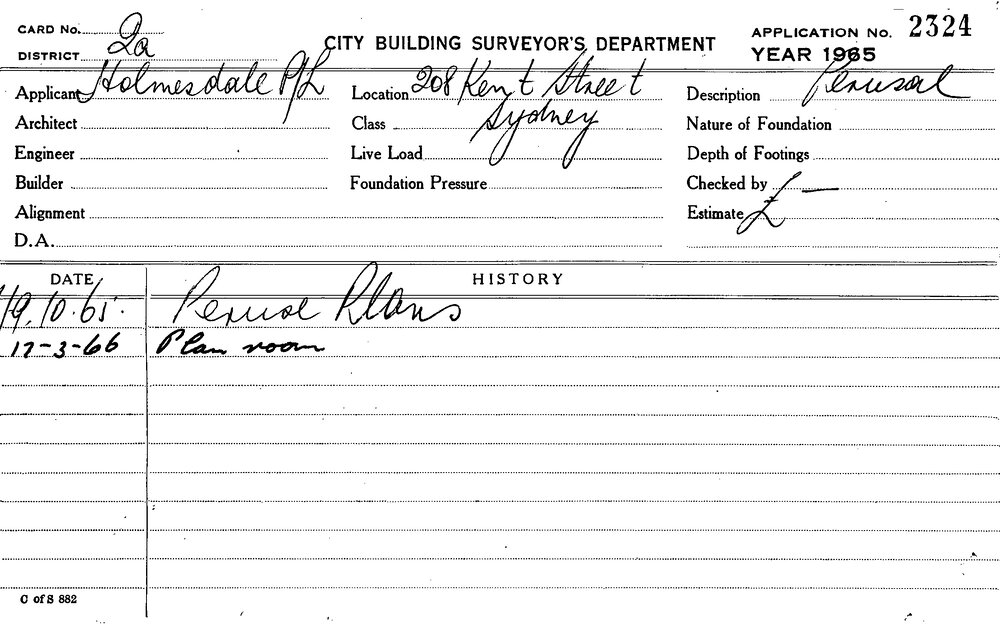 CARD No. 2a
CITY BUILDING SURVEYOR'S DEPARTMENT
APPLICATION No. 2324
DISTRICT
YEAR 1965
Applicant Holmesdale P/L Location 208 Kent Street Description Perusal
Architect Class Sydney Nature of Foundation
Engineer Live Load Depth of Footings
Builder Foundation Pressure Checked by
Alignment Estimate £ —
D.A.
DATE HISTORY
19.10.65. Peruse Plans
17-3-66 Plan room
C of S 882